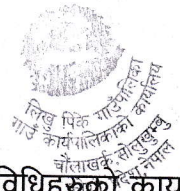 लिखु पिके गाउँपालिका
गाउँ कार्यपालिकाको कार्यालय
चौलाखर्क, सोलुखुम्बु
नेपाल
विधिहरुको कार्य